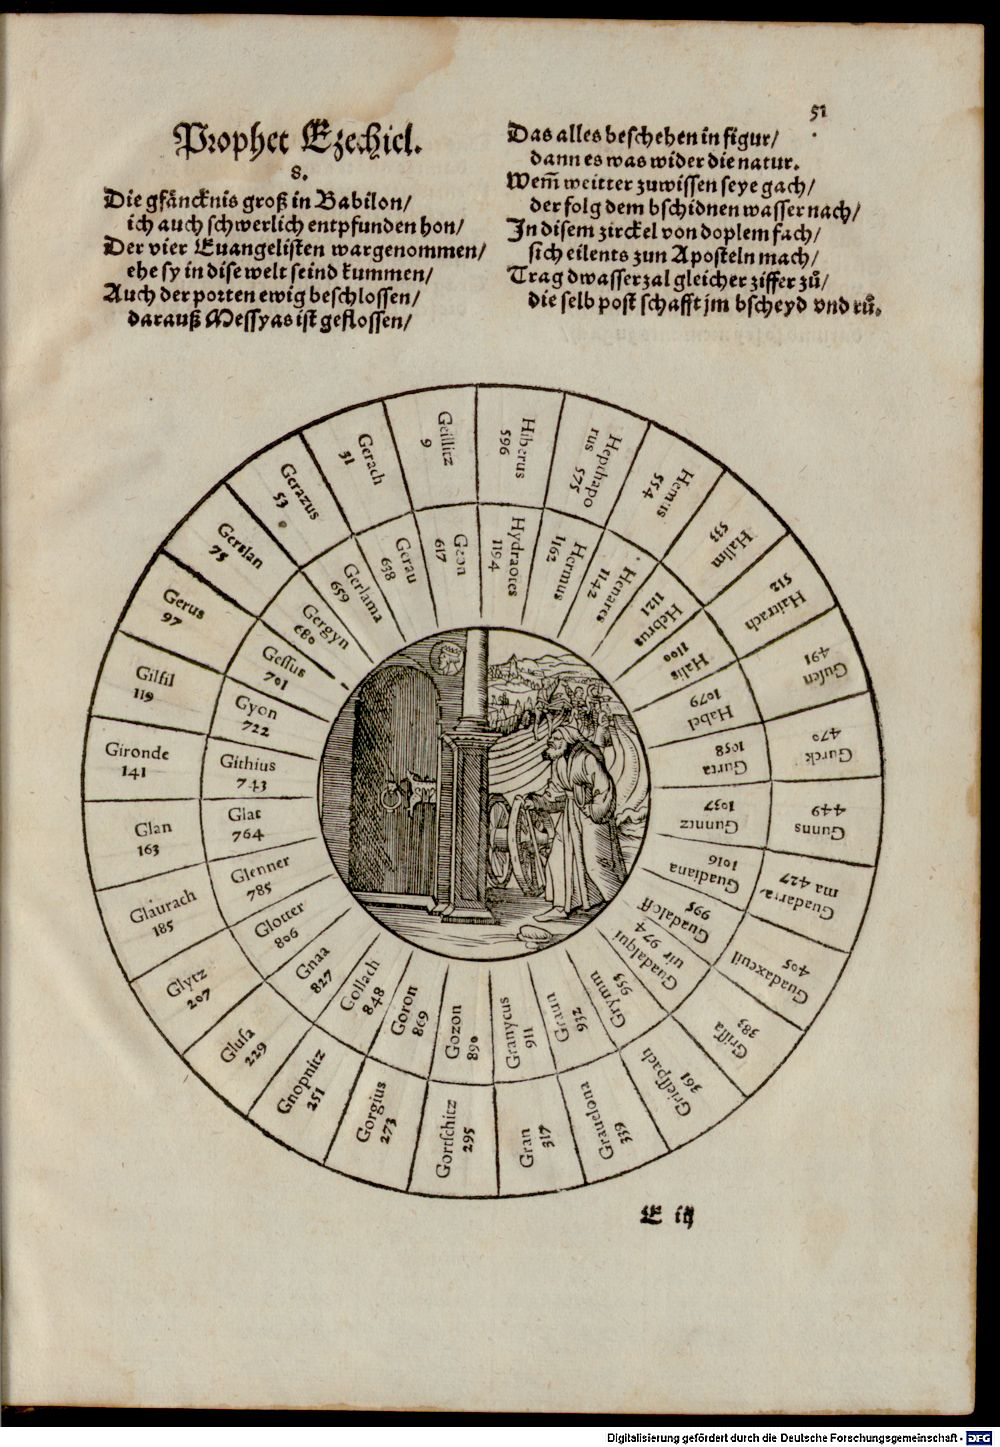 51
Prophet Ezechiel.
8.
Die gfäncknis groß in Babilon/
ich auch schwerlich entpfunden hon/
Der vier Euangelisten wargenommen/
ehe sy in dise welt seind kummen/
Auch der porten ewig beschlossen/
darauß Messyas ist geflossen/
Das alles beschehen in figur/
dann es was wider die natur.
Wem̄ weitter zuwissen seye gach/
der folg dem bschidnen wasser nach/
In disem zirckel von doplem fach/
sich eilents zun Aposteln mach/
Trag dwasserzal gleicher ziffer zů/
die selb post schafft jm bscheyd vnd rů.
Hiberus
596
Hepthapo
rus 575
Hemus
554
Hallm
533
Haitrach
512
Gusen
491
Gurck
470
Gunns
449
Guadarra-
ma 427
Guadaxenil
405
Grissa
383
Griesspach
361
Grauelona
339
Gran
317
Gortschitz
295
Gorgius
273
Gnopnitz
251
Glusa
229
Glytz
207
Glaurach
185
Glan
163
Gironde
141
Gilfil
119
Gerus
97
Gerslan
75
Gerazus
53
Gerach
31
Geillitz
9
Hydraotes
1194
Hermus
1162
Henares
1142
Hebrus
1121
Halis
1100
Habel
1079
Gurta
1058
Guntz
1037
Guadiana
1016
Guadaloff
995
Guadalqui
uir 974
Grymm
953
Graun
932
Granycus
911
Gozon
890
Goron
869
Gollach
848
Gnaa
827
Glotter
806
Glenner
785
Glat
764
Githius
743
Gyon
722
Gessus
701
Gergyn
680
Gerlama
659
Gerau
638
Geon
617
E iij
Digitalisierung gefördert durch die Deutsche Forschungsgemeinschaft - DFG